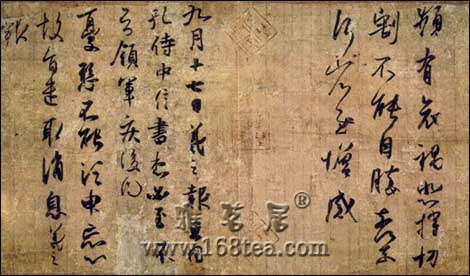 頻有哀禍悲摧切
割不能自勝奈何
奈何省慰增感
九月十七日羲之報且因
孔侍中信書想必至不
知領軍疾後問
憂懸不能須臾忘心
故旨遣取消息羲之
報
雅茗居®
www.168tea.com